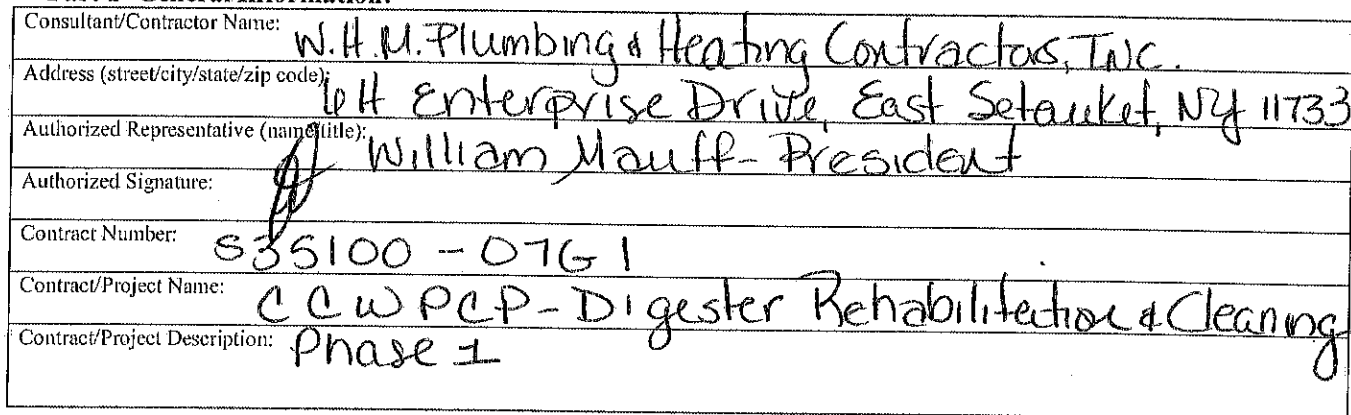 Consultant/Contractor Name: W.H.M. Plumbing & Heating Contractors, INC.
Address (street/city/state/zip code): 6H Enterprise Drive, East Setauket, NY 11733
Authorized Representative (name/title): William Mauff - President
Authorized Signature:
Contract Number: S35100 - 07G1
Contract/Project Name: CCWPCP - Digester Rehabilitation & Cleaning
Contract/Project Description: Phase 1